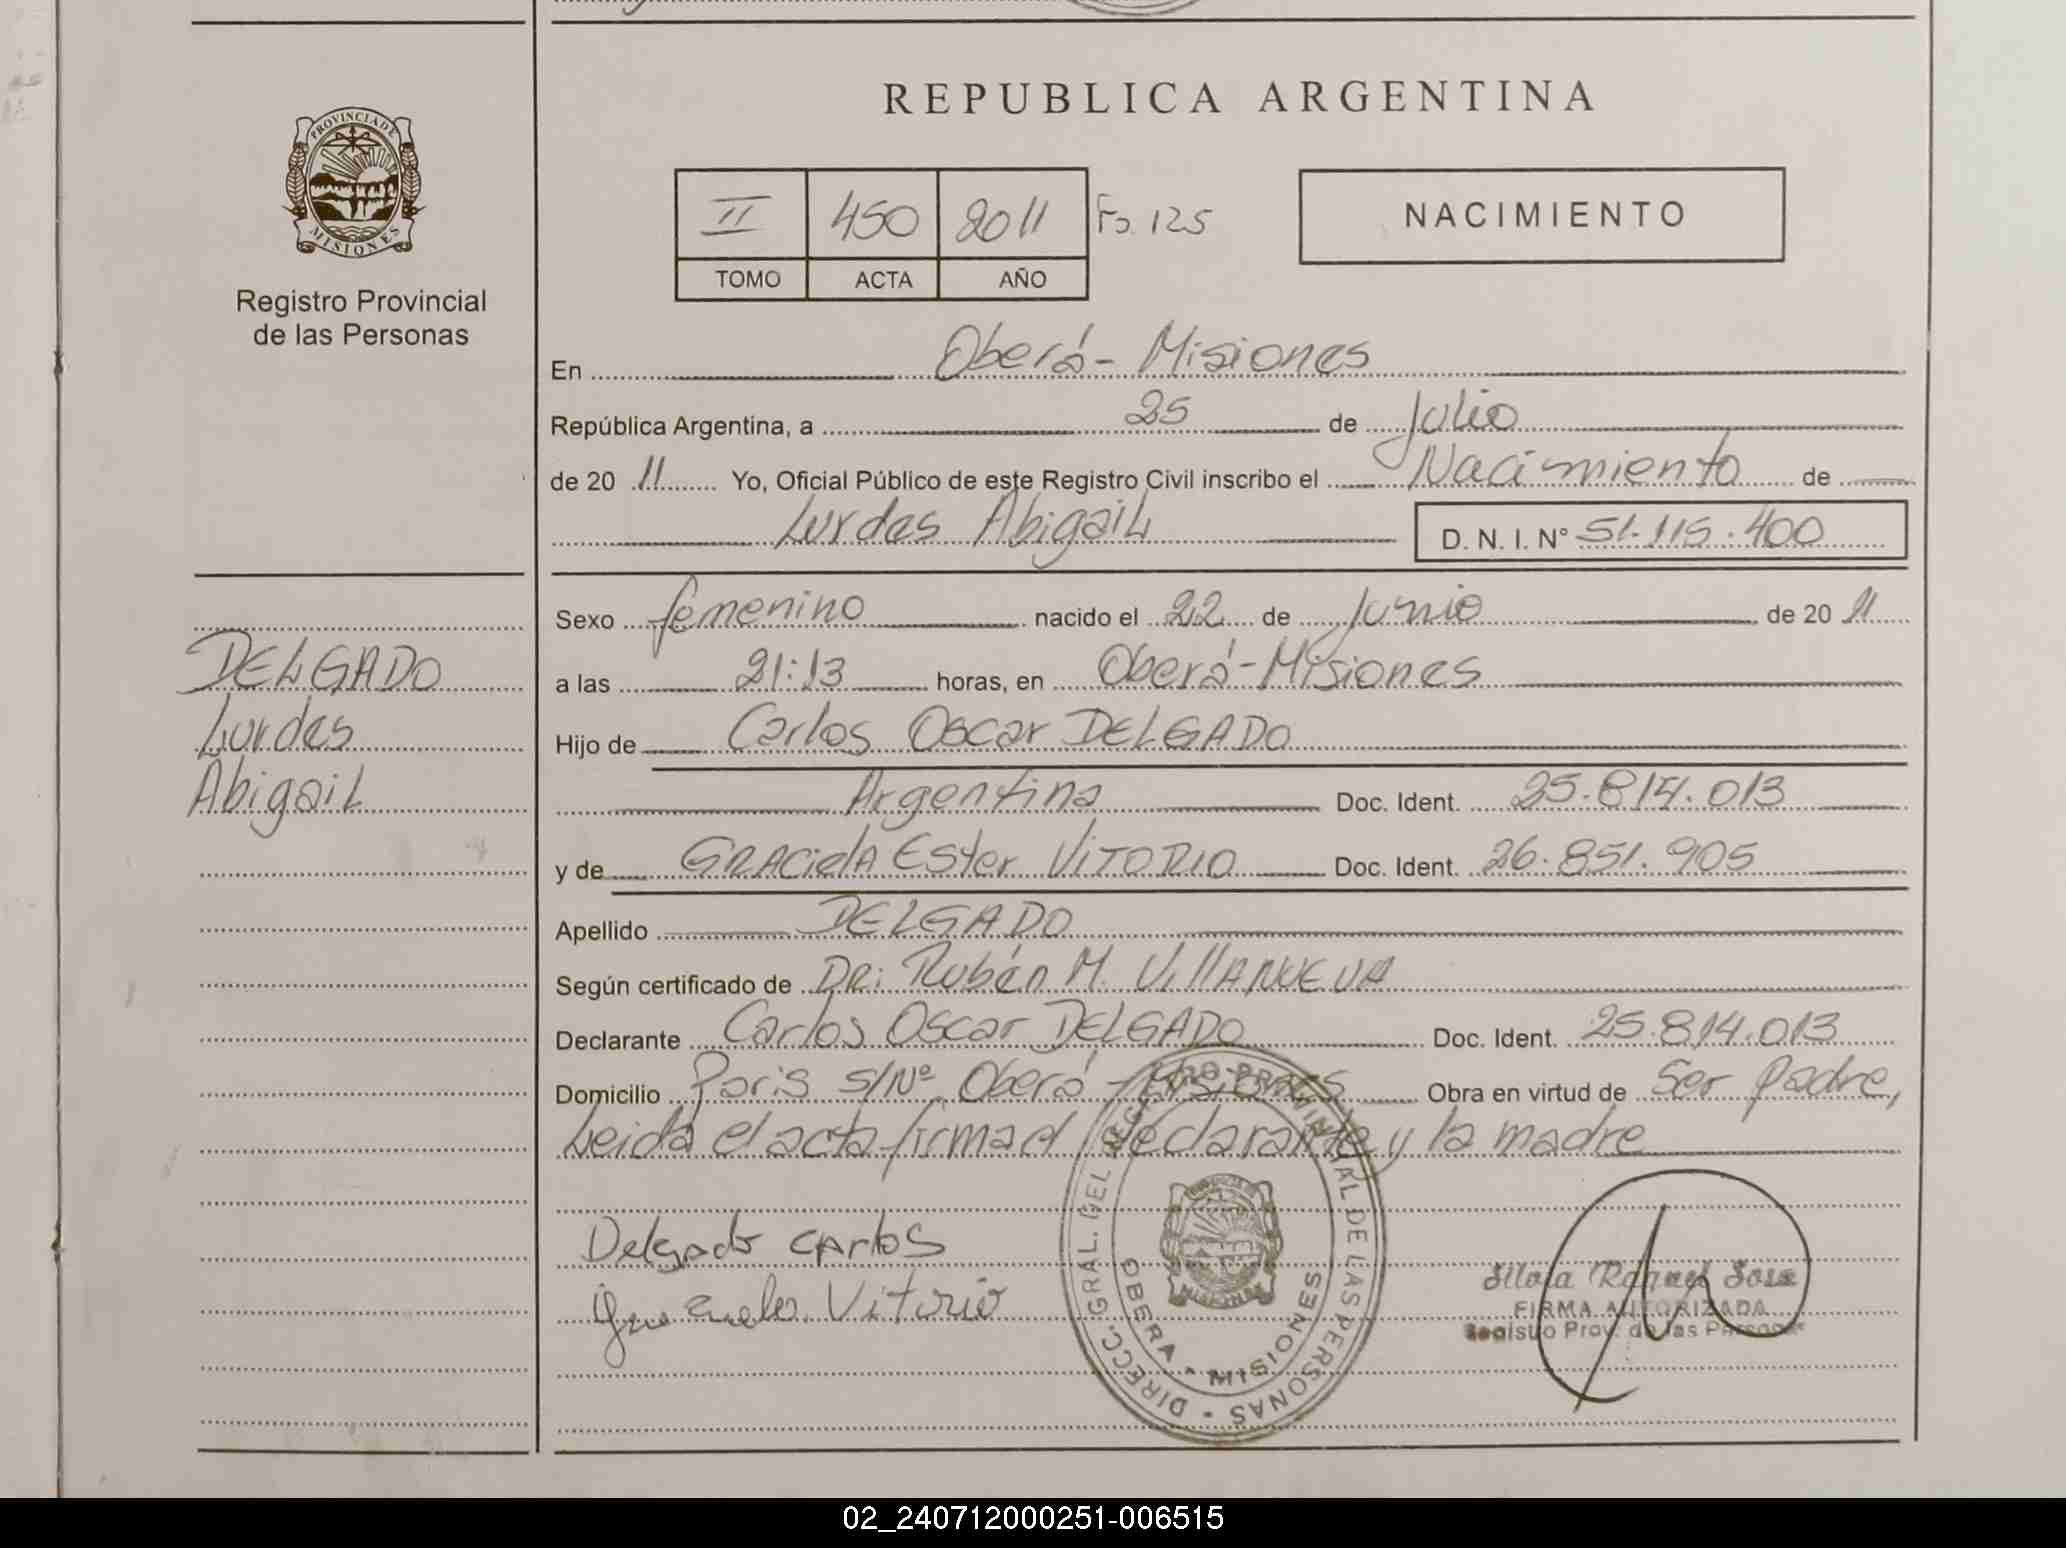 REPUBLICA ARGENTINA
PROVINCIA DE
MISIONES
Registro Provincial
de las Personas
II 450 2011 Fo. 125
TOMO ACTA AÑO
NACIMIENTO
En Oberá - Misiones
República Argentina, a 25 de Julio
de 20 11 Yo, Oficial Público de este Registro Civil inscribo el Nacimiento de
Lurdes Abigail D. N. I. N° 51.115.400
DELGADO
Lurdes
Abigail
Sexo femenino nacido el 22 de Junio de 20 11
a las 21:13 horas, en Oberá - Misiones
Hijo de Carlos Oscar DELGADO
Argentina Doc. Ident. 25.814.013
y de GRACielA Ester VITORIO Doc. Ident. 26.851.905
Apellido DELGADO
Según certificado de DR: Rubén M. VillANUEVA
Declarante Carlos Oscar DELGADO Doc. Ident. 25.814.013
Domicilio Paris S/Nº Oberá - Misiones Obra en virtud de Ser padre,
Leida el acta firman el declarante y la madre
Delgado Carlos
Vitorio
DIRECC. GRAL. DEL REGISTRO PROVINCIAL DE LAS PERSONAS -
OBERA - MISIONES
MISIONES
Silvia Raquel Sosa
FIRMA AUTORIZADA
Registro Prov. de las Personas
02_240712000251-006515